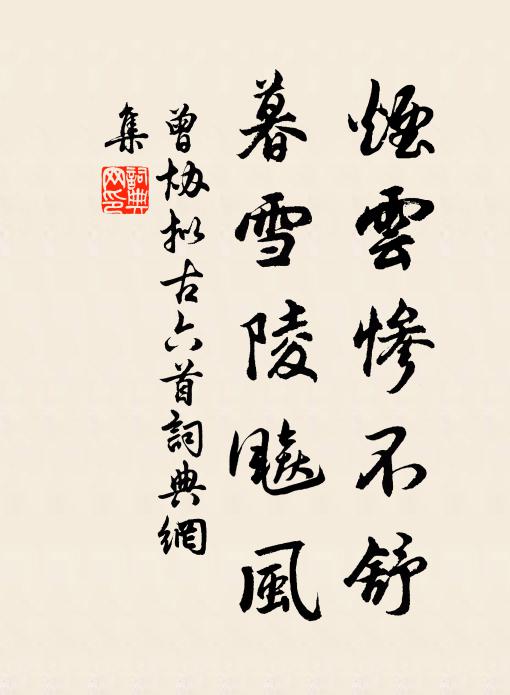 煙雲惨不舒
暮雪陵飈風
曾協拟古六首詞典網
集
詞典
网印